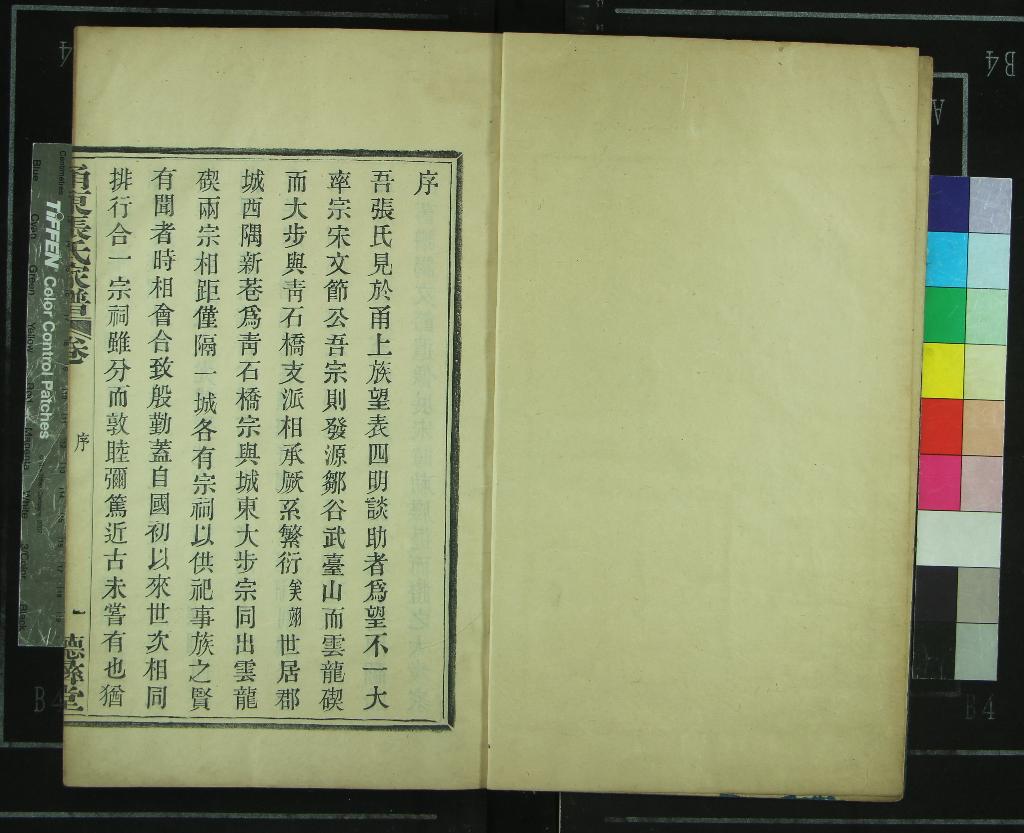 序
吾張氏見於甬上族望表四明談助者爲望不一大
率宗宋文節公吾宗則發源鄒谷武臺山而雲龍碶
而大步與靑石橋支派相承厥系繁衍美翊世居郡
城西隅新巷爲靑石橋宗與城東大步宗同出雲龍
碶兩宗相距僅隔一城各有宗祠以供祀事族之賢
有聞者時相會合致殷勤蓋自國初以來世次相同
排行合一宗祠雖分而敦睦彌篤近古未嘗有也猶
甬東張氏家譜 卷 序 一
TIFFEN Color Control Patches
Centimetres
Blue
Green
Yellow
B4
A
B4
B4